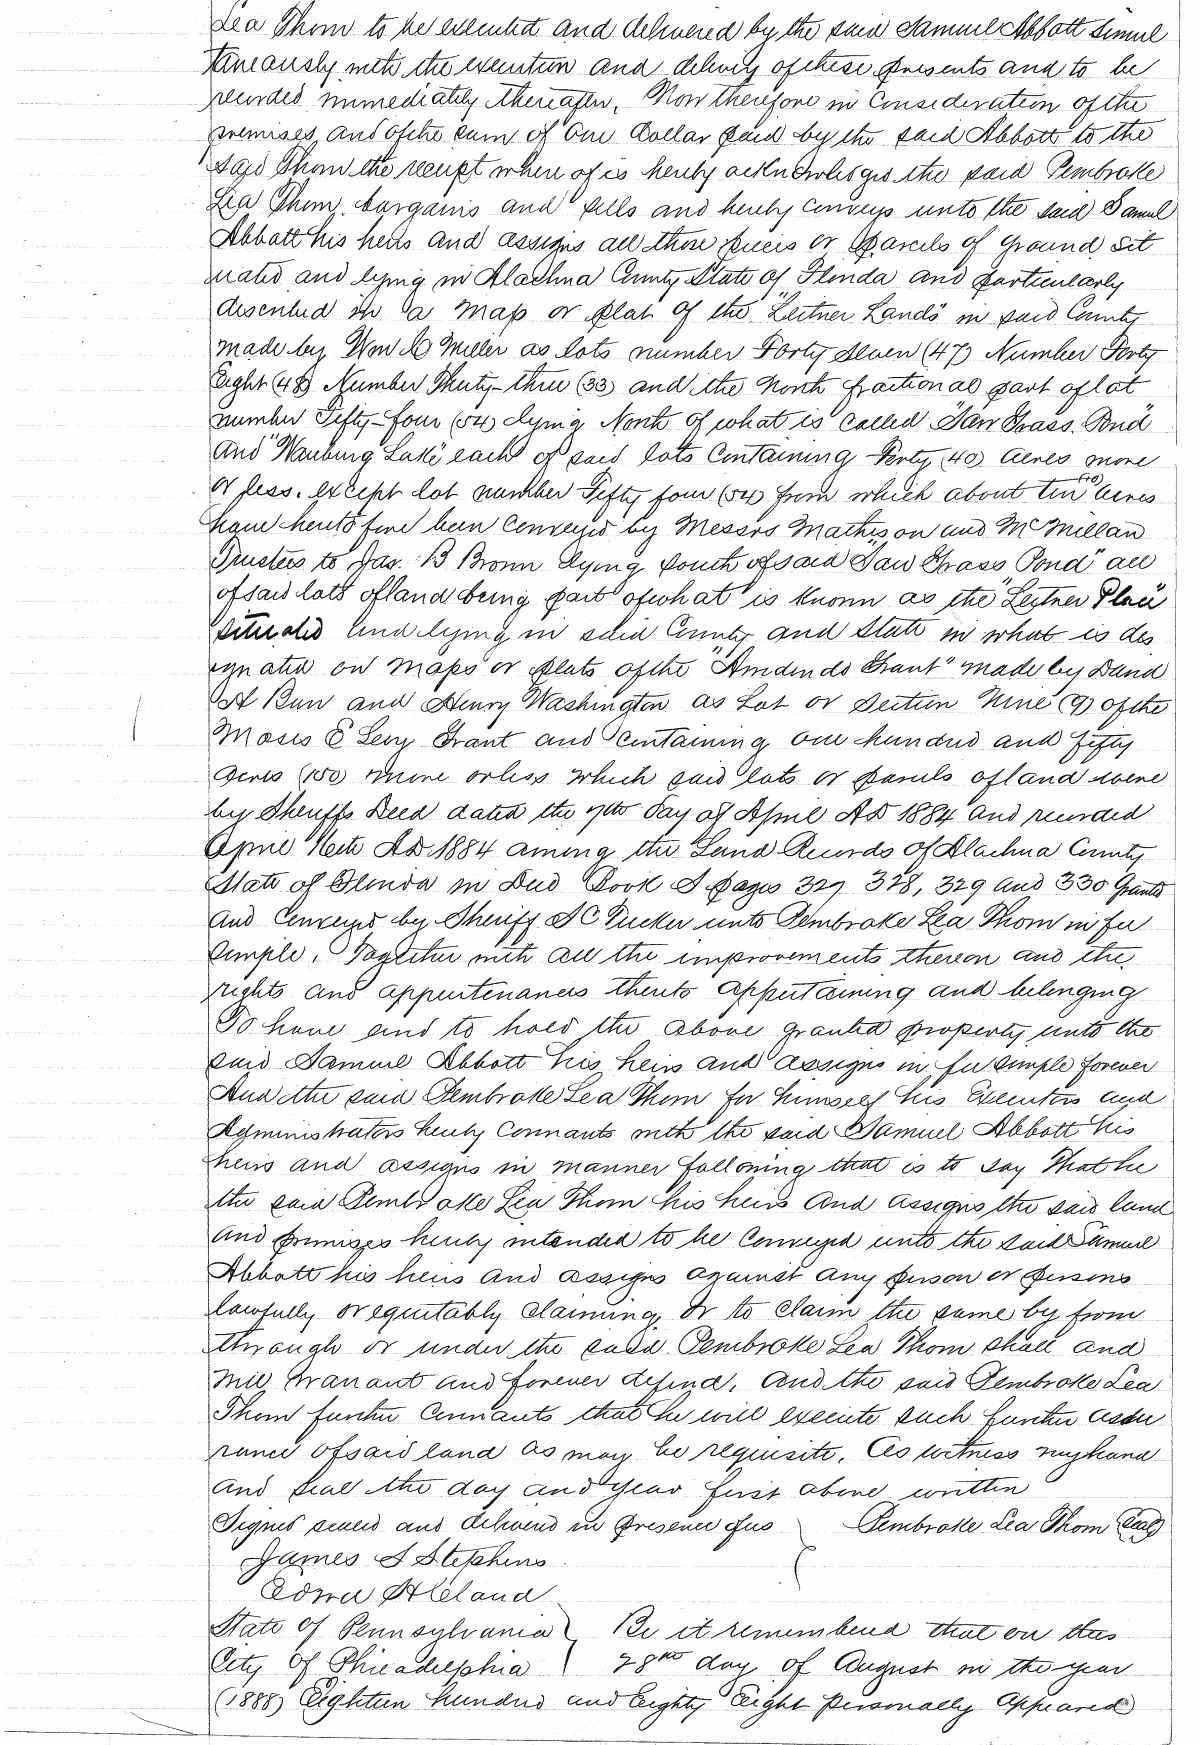 Lea Thom to be executed and delivered by the said Samuel Abbott simul
taneously with the execution and delivery of these presents and to be
recorded immediately thereafter. Now therefore in consideration of the
premises, and of the sum of One Dollar paid by the said Abbott to the
said Thom the receipt where of is hereby acknowledges the said Pembroke
Lea Thom bargains and sells and hereby conveys unto the said Samuel
Abbott his heirs and assigns all those pieces or parcels of ground sit
uated and lying in Alachua County State of Florida and particularly
described in a map or plat of the "Leitner Lands" in said County
made by Wm C Miller as lots number Forty Seven (47) Number Forty
Eight (48) Number Thirty-three (33) and the North fractional part of lot
number Fifty-four (54) lying North of what is called "Saw Grass Pond"
and "Wauburg Lake" each of said lots containing Forty (40) acres more
or less. except lot number Fifty four (54) from which about ten (10) acres
have heretofore been conveyed by Messrs Matheson and McMillan
Trustees to Jas. B Brown lying south of said "Saw Grass Pond" all
of said lots of land being part of what is known as the "Leitner Place"
situated and lying in said County and State in what is des
ignated on maps or plats of the "Arredondo Grant" made by David
A Burr and Henry Washington as Lot or Section Nine (9) of the
Moses E Levy Grant and containing one hundred and fifty
acres (150) more or less which said lots or parcels of land were
by Sheriffs Deed dated the 7th day of April AD 1884 and recorded
April 16th AD. 1884 among the Land Records of Alachua County
State of Florida in Deed Book S pages 327 328, 329 and 330 Grants
and conveyed by Sheriff S C Tucker unto Pembroke Lea Thom in fee
simple. Together with all the improvements thereon and the
rights and appurtenances thereto appertaining and belonging
To have and to hold the above granted property unto the
said Samuel Abbott his heirs and assigns in fee simple forever
And the said Pembroke Lea Thom for himself his Executors and
Administrators hereby covenants with the said Samuel Abbott his
heirs and assigns in manner following that is to say That he
the said Pembroke Lea Thom his heirs and assigns, the said land
and premises hereby intended to be conveyed unto the said Samuel
Abbott his heirs and assigns against any person or persons
lawfully or equitably claiming, or to claim the same by from
through or under the said Pembroke Lea Thom shall and
will warrant and forever defend. And the said Pembroke Lea
Thom further covenants that he will execute such further assu
rance of said land as may be requisite. As witness my hand
and seal the day and year first above written
Signed sealed and delivered in presence of us Pembroke Lea Thom (Seal)
James S Stephens
State of Pennsylvania } Be it remembered that on this
City of Philadelphia } 28th day of August in the year
(1888) Eighteen hundred and Eighty Eight personally appeared